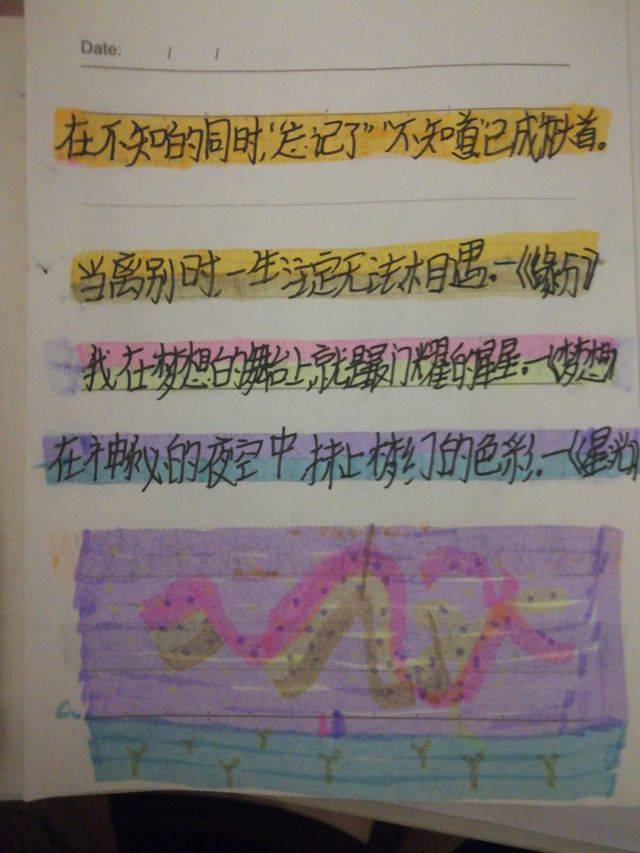 Date: / /
在不知的同时,“忘记了”“不知道”已成知道。
当离别时,一生注定无法相遇。—《缘分》
我在梦想的舞台上,就是最闪耀的星星。—《梦想》
在神秘的夜空中,抹上梦幻的色彩。—《星光》